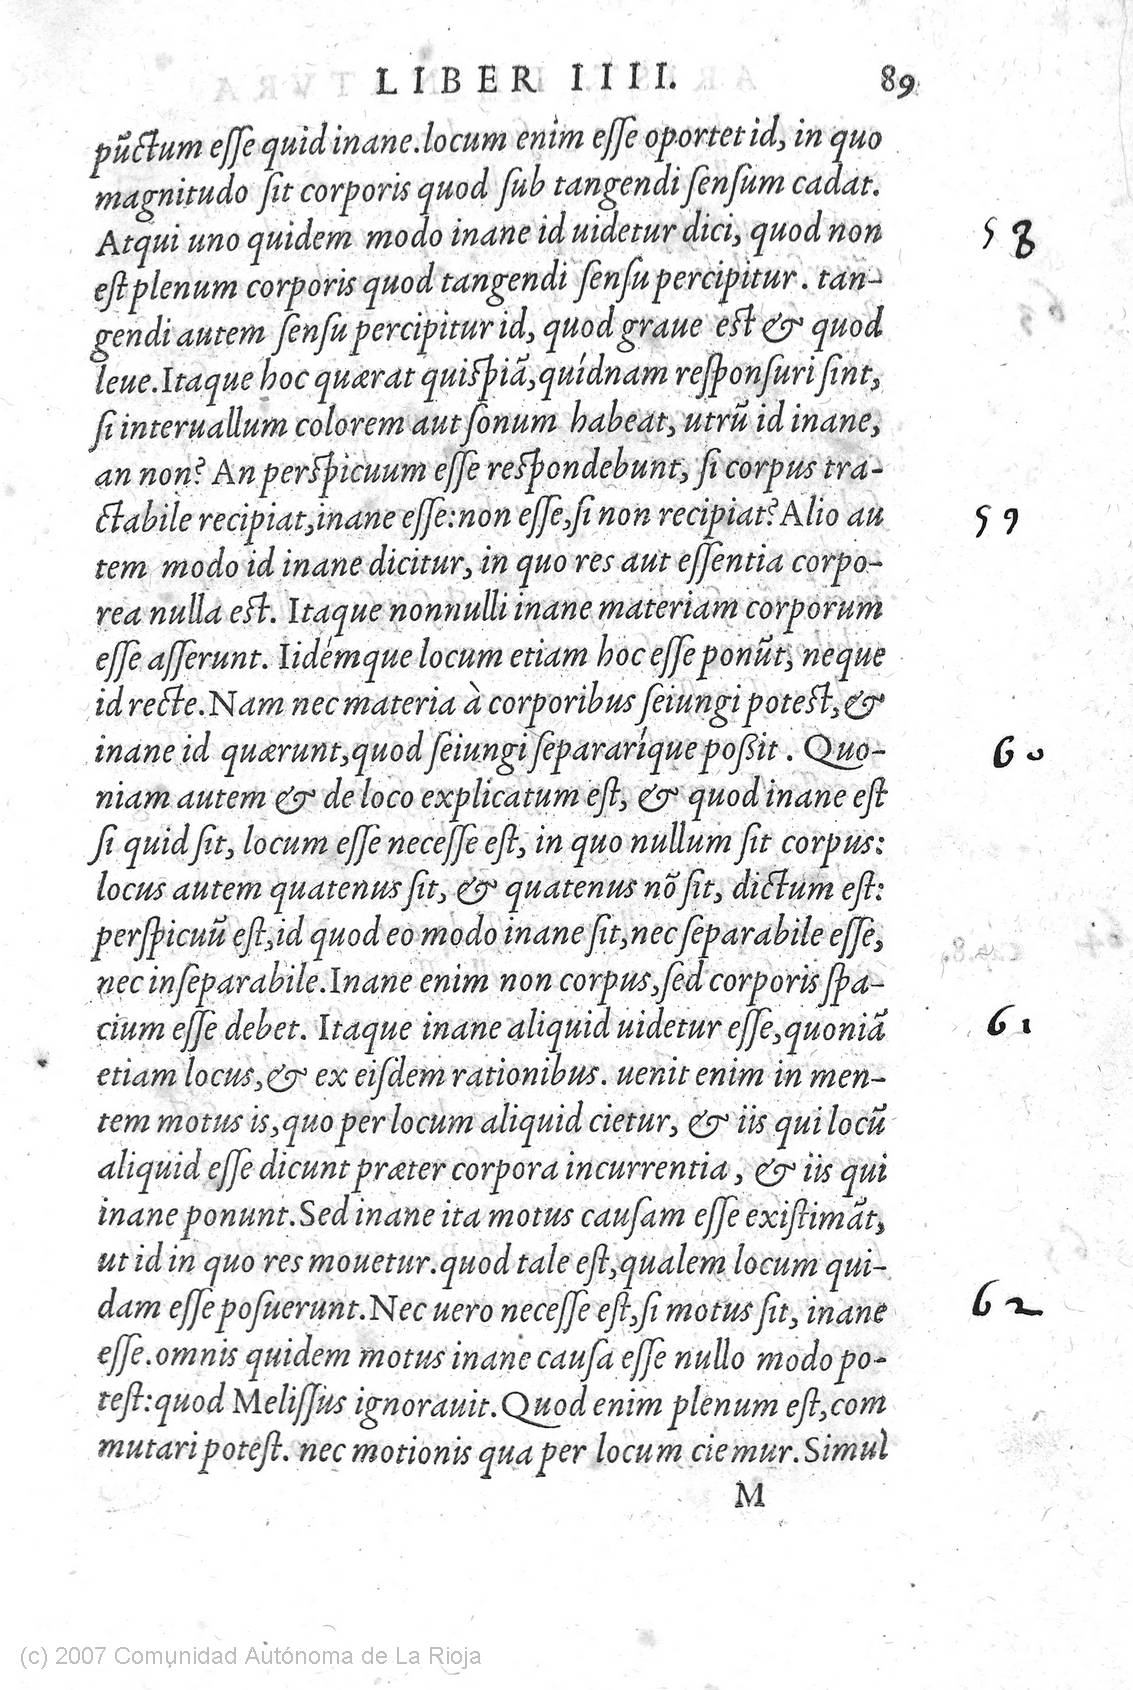 LIBER IIII. 89
pũctum esse quid inane.locum enim esse oportet id, in quo
magnitudo sit corporis quod sub tangendi sensum cadat.
Atqui uno quidem modo inane id uidetur dici, quod non 58
est plenum corporis quod tangendi sensu percipitur. tan-
gendi autem sensu percipitur id, quod graue est & quod
leue.Itaque hoc quærat quispiã,quídnam responsuri sint,
si interuallum colorem aut sonum habeat, utrũ id inane,
an non? An perspicuum esse respondebunt, si corpus tra-
ctabile recipiat,inane esse:non esse,si non recipiat?Alio au 59
tem modo id inane dicitur, in quo res aut essentia corpo-
rea nulla est. Itaque nonnulli inane materiam corporum
esse asserunt. Iidémque locum etiam hoc esse ponũt, neque
id recte.Nam nec materia à corporibus seiungi potest,&
inane id quærunt,quod seiungi separaríque possit. Quo- 60
niam autem & de loco explicatum est, & quod inane est
si quid sit, locum esse necesse est, in quo nullum sit corpus:
locus autem quatenus sit, & quatenus nõ sit, dictum est:
perspicuũ est,id quod eo modo inane sit,nec separabile esse,
nec inseparabile.Inane enim non corpus,sed corporis spa-
cium esse debet. Itaque inane aliquid uidetur esse,quoniã 61
etiam locus,& ex eisdem rationibus. uenit enim in men-
tem motus is,quo per locum aliquid cietur, & iis qui locũ
aliquid esse dicunt præter corpora incurrentia, & iis qui
inane ponunt.Sed inane ita motus causam esse existimãt,
ut id in quo res mouetur.quod tale est,qualem locum qui-
dam esse posuerunt.Nec uero necesse est,si motus sit, inane 62
esse.omnis quidem motus inane causa esse nullo modo po-
test:quod Melissus ignorauit.Quod enim plenum est,com
mutari potest. nec motionis qua per locum ciemur.Simul
M
(c) 2007 Comunidad Autónoma de La Rioja